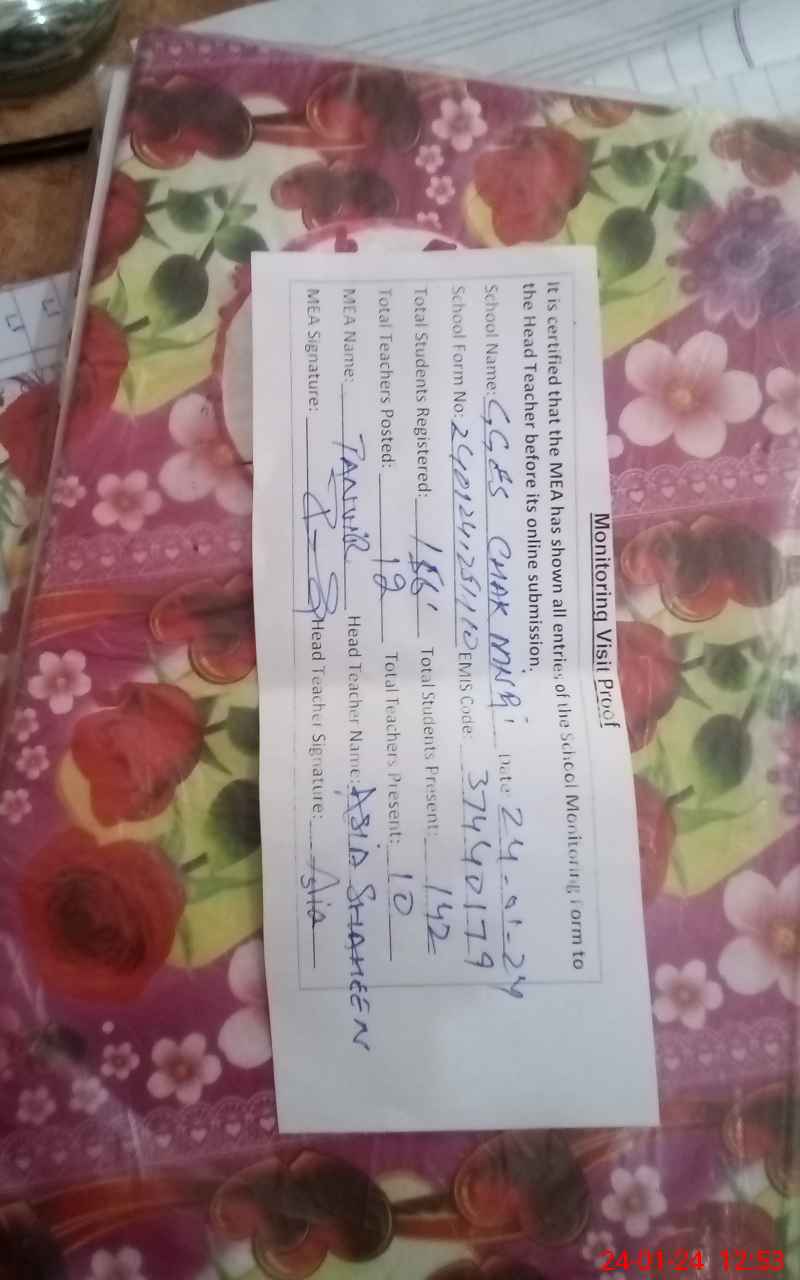 Monitoring Visit Proof
It is certified that the MEA has shown all entries of the School Monitoring Form to
the Head Teacher before its online submission.
School Name: GGES CHAK Date: 24-01-24
School Form No: EMIS Code: 37440179
Total Students Registered: Total Students Present: 142
Total Teachers Posted: 12 Total Teachers Present: 10
MEA Name: TANVIR Head Teacher Name: ASIA SHAHEEN
MEA Signature: Head Teacher Signature: Asia
24-01-24 12:53